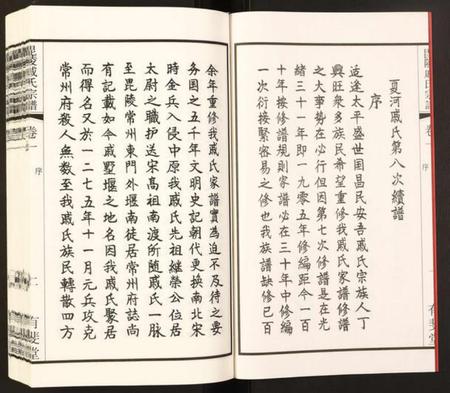 毘陵戚氏宗譜
卷一
序
有斐堂
夏河戚氏第八次續譜
序
适逢太平盛世国昌民安吾戚氏宗族人丁
興旺衆多族民希望重修我戚氏家譜修譜
之大事势在必行但因第七次修譜是在光
緒三十一年即一九零五年修編距今一百
十年按修譜規則家譜必在三十年中修編
一次衍接緊容易之修也我族譜缺修已百
余年重修我戚氏家譜實為迫不及待之要
务国之五千年文明史記朝代更换南北宋
時金兵入侵中原我戚氏先祖継榮公位居
太尉之職护送宋高祖南渡所随戚氏一脉
至毘陵常州東門外堰南徒居常州府誌尚
有記載如今戚墅堰之地名因我戚氏聚居
而得名又於一二七五年十一月元兵攻克
常州府殺人無数至我戚氏族民轉散四方
毘陵戚氏宗譜
卷一
序
二
有斐堂